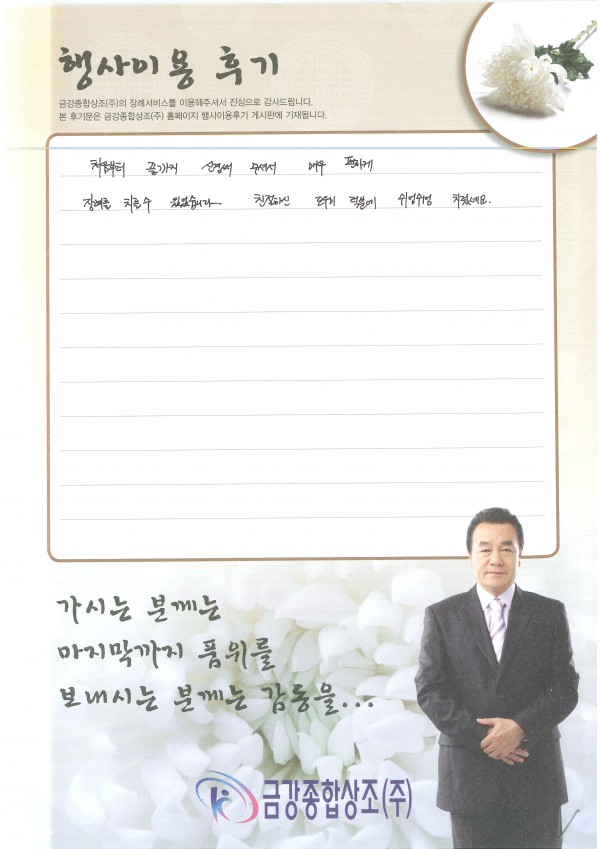 행사이용 후기
금강종합상조(주)의 장례서비스를 이용해주셔서 진심으로 감사드립니다.
본 후기문은 금강종합상조(주) 홈페이지 행사이용후기 게시판에 기재됩니다.
처음부터 끝까지 신경써 주셔서 매우 편하게
장례를 치를수 있었습니다 친절하신 도우미 덕분에
가시는 분께는
마지막까지 품위를
보내시는 분께는 감동을...
금강종합상조(주)